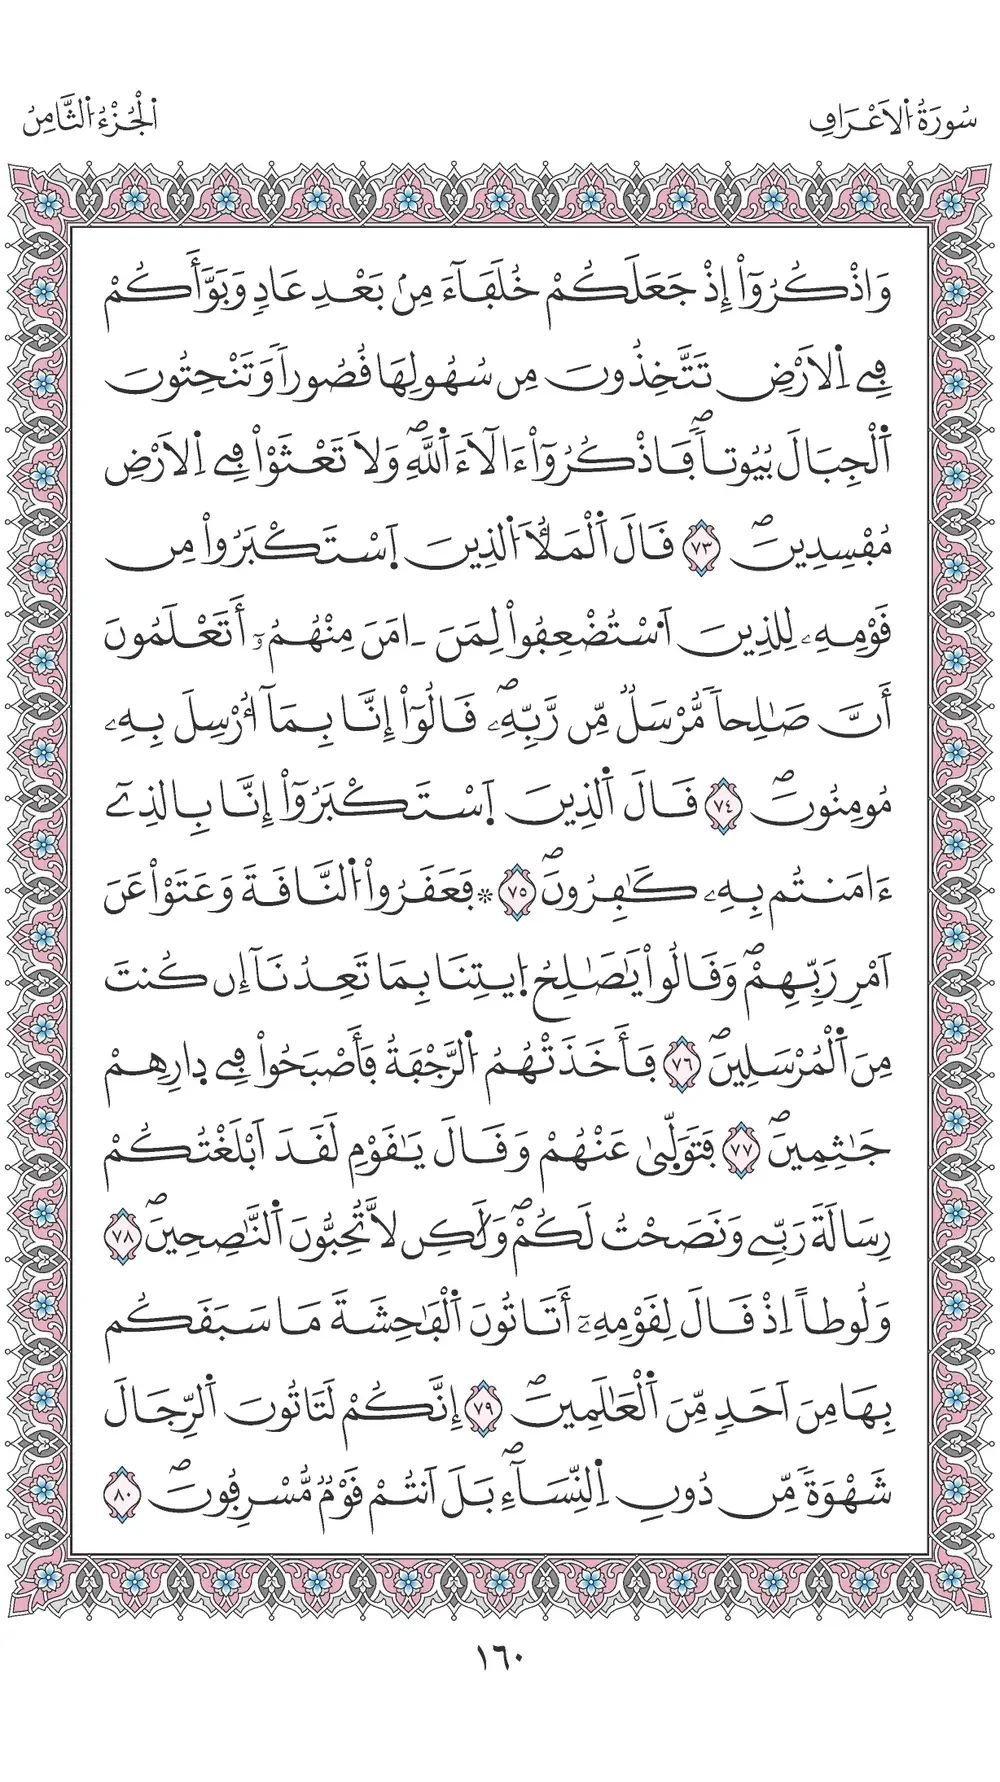 سُورَةُ الَاعْرَافِ
الْجُزْءُ الثَّامِنُ
وَاذْكُرُوٓاْ إِذْ جَعَلَكُمْ خُلَفَآءَ مِنۢ بَعْدِ عَادٖ وَبَوَّأَكُمْ
فِے اِ۬لَارْضِ تَتَّخِذُونَ مِن سُهُولِهَا قُصُوراٗ وَتَنْحِتُونَ
اَ۬لْجِبَالَ بُيُوتاٗۖ فَاذْكُرُوٓاْ ءَالَآءَ اَ۬للَّهِۖ وَلَا تَعْثَوْاْ فِے اِ۬لَارْضِ
مُفْسِدِينَۖ ٧٣ قَالَ اَ۬لْمَلَأُ اُ۬لذِينَ اَ۪سْتَكْبَرُواْ مِن
قَوْمِهِۦ لِلذِينَ اَ۟سْتُضْعِفُواْ لِمَنَ اٰمَنَ مِنْهُمُۥٓ أَتَعْلَمُونَ
أَنَّ صَٰلِحاٗ مُّرْسَلٞ مِّن رَّبِّهِۦۖ قَالُوٓاْ إِنَّا بِمَآ أُرْسِلَ بِهِۦ
مُومِنُونَۖ ٧٤ قَالَ اَ۬لذِينَ اَ۪سْتَكْبَرُوٓاْ إِنَّا بِالذِےٓ
ءَامَنتُم بِهِۦ كَٰفِرُونَۖ ٧٥ ۞فَعَقَرُواْ اُ۬لنَّاقَةَ وَعَتَوْاْ عَنَ
اَمْرِ رَبِّهِمْۖ وَقَالُواْ يَٰصَٰلِحُ اُ۪يتِنَا بِمَا تَعِدُنَآ إِن كُنتَ
مِنَ اَ۬لْمُرْسَلِينَۖ ٧٦ فَأَخَذَتْهُمُ اُ۬لرَّجْفَةُ فَأَصْبَحُواْ فِے دِارِهِمْ
جَٰثِمِينَۖ ٧٧ فَتَوَلّ۪ىٰ عَنْهُمْ وَقَالَ يَٰقَوْمِ لَقَدَ اَبْلَغْتُكُمْ
رِسَالَةَ رَبِّے وَنَصَحْتُ لَكُمْۖ وَلَٰكِن لَّا تُحِبُّونَ اَ۬لنَّٰصِحِينَۖ ٧٨
وَلُوطاً اِذْ قَالَ لِقَوْمِهِۦٓ أَتَاتُونَ اَ۬لْفَٰحِشَةَ مَا سَبَقَكُم
بِهَا مِنَ اَحَدٖ مِّنَ اَ۬لْعَٰلَمِينَۖ ٧٩ إِنَّكُمْ لَتَاتُونَ اَ۬لرِّجَالَ
شَهْوَةٗ مِّن دُونِ اِ۬لنِّسَآءِۖ بَلَ اَنتُمْ قَوْمٞ مُّسْرِفُونَۖ ٨٠
١٦٠